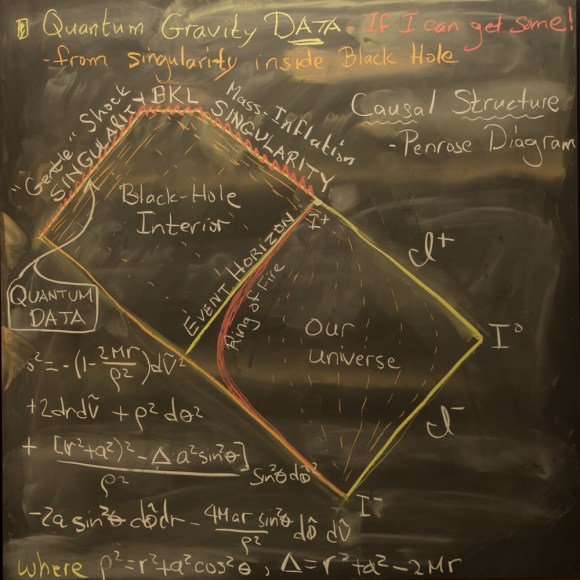 Quantum Gravity DATA - If I can get some!
- from singularity inside Black Hole
Causal Structure
- Penrose Diagram
"Gentle" Shock
SINGULARITY
BKL
Mass Inflation
SINGULARITY
Black-Hole
Interior
I⁺
EVENT HORIZON
Ring of Fire
ℐ⁺
QUANTUM
DATA
Our
universe
I⁰
ℐ⁻
I⁻
s²=-(1-2Mr/ρ²)dṽ²
+2drdṽ + ρ²dθ²
+ [(r²+a²)²-Δa²sin²θ]/ρ² sin²θdφ̃²
-2a sin²θ dφ̃dr - 4Mar sin²θ/ρ² dφ̃ dṽ
where ρ²=r²+a²cos²θ, Δ=r²+a²-2Mr